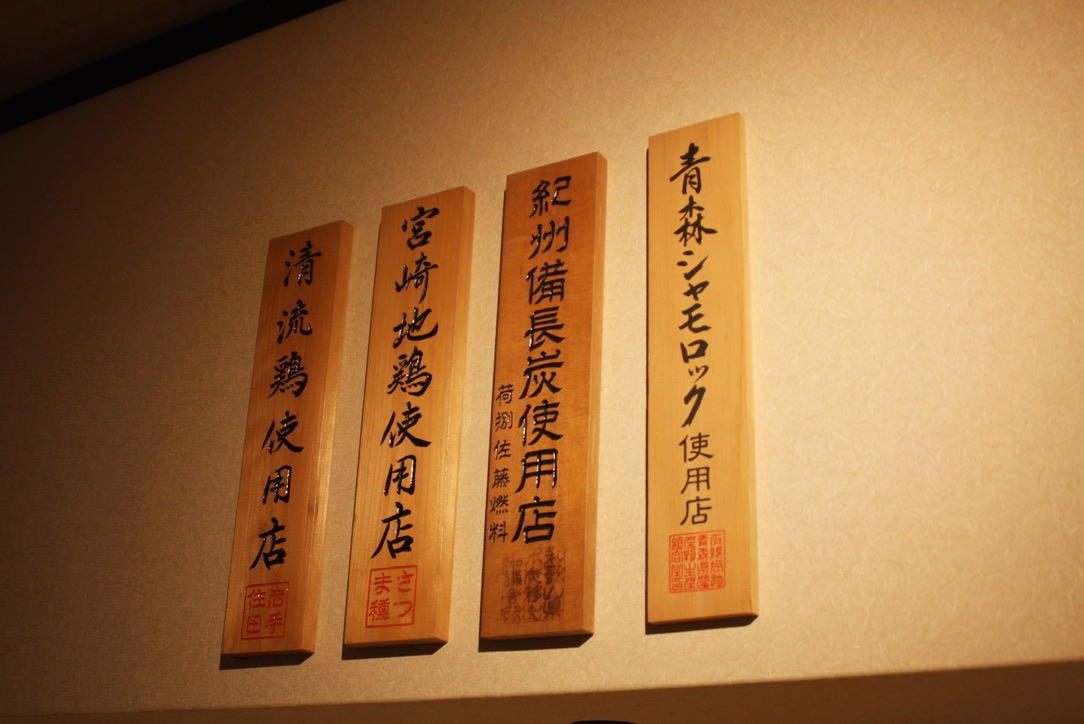 青森シャモロック使用店
紀州備長炭使用店
荷捌佐藤燃料
宮崎地鶏使用店
さつ
ま種
清流鶏使用店
岩手
住田